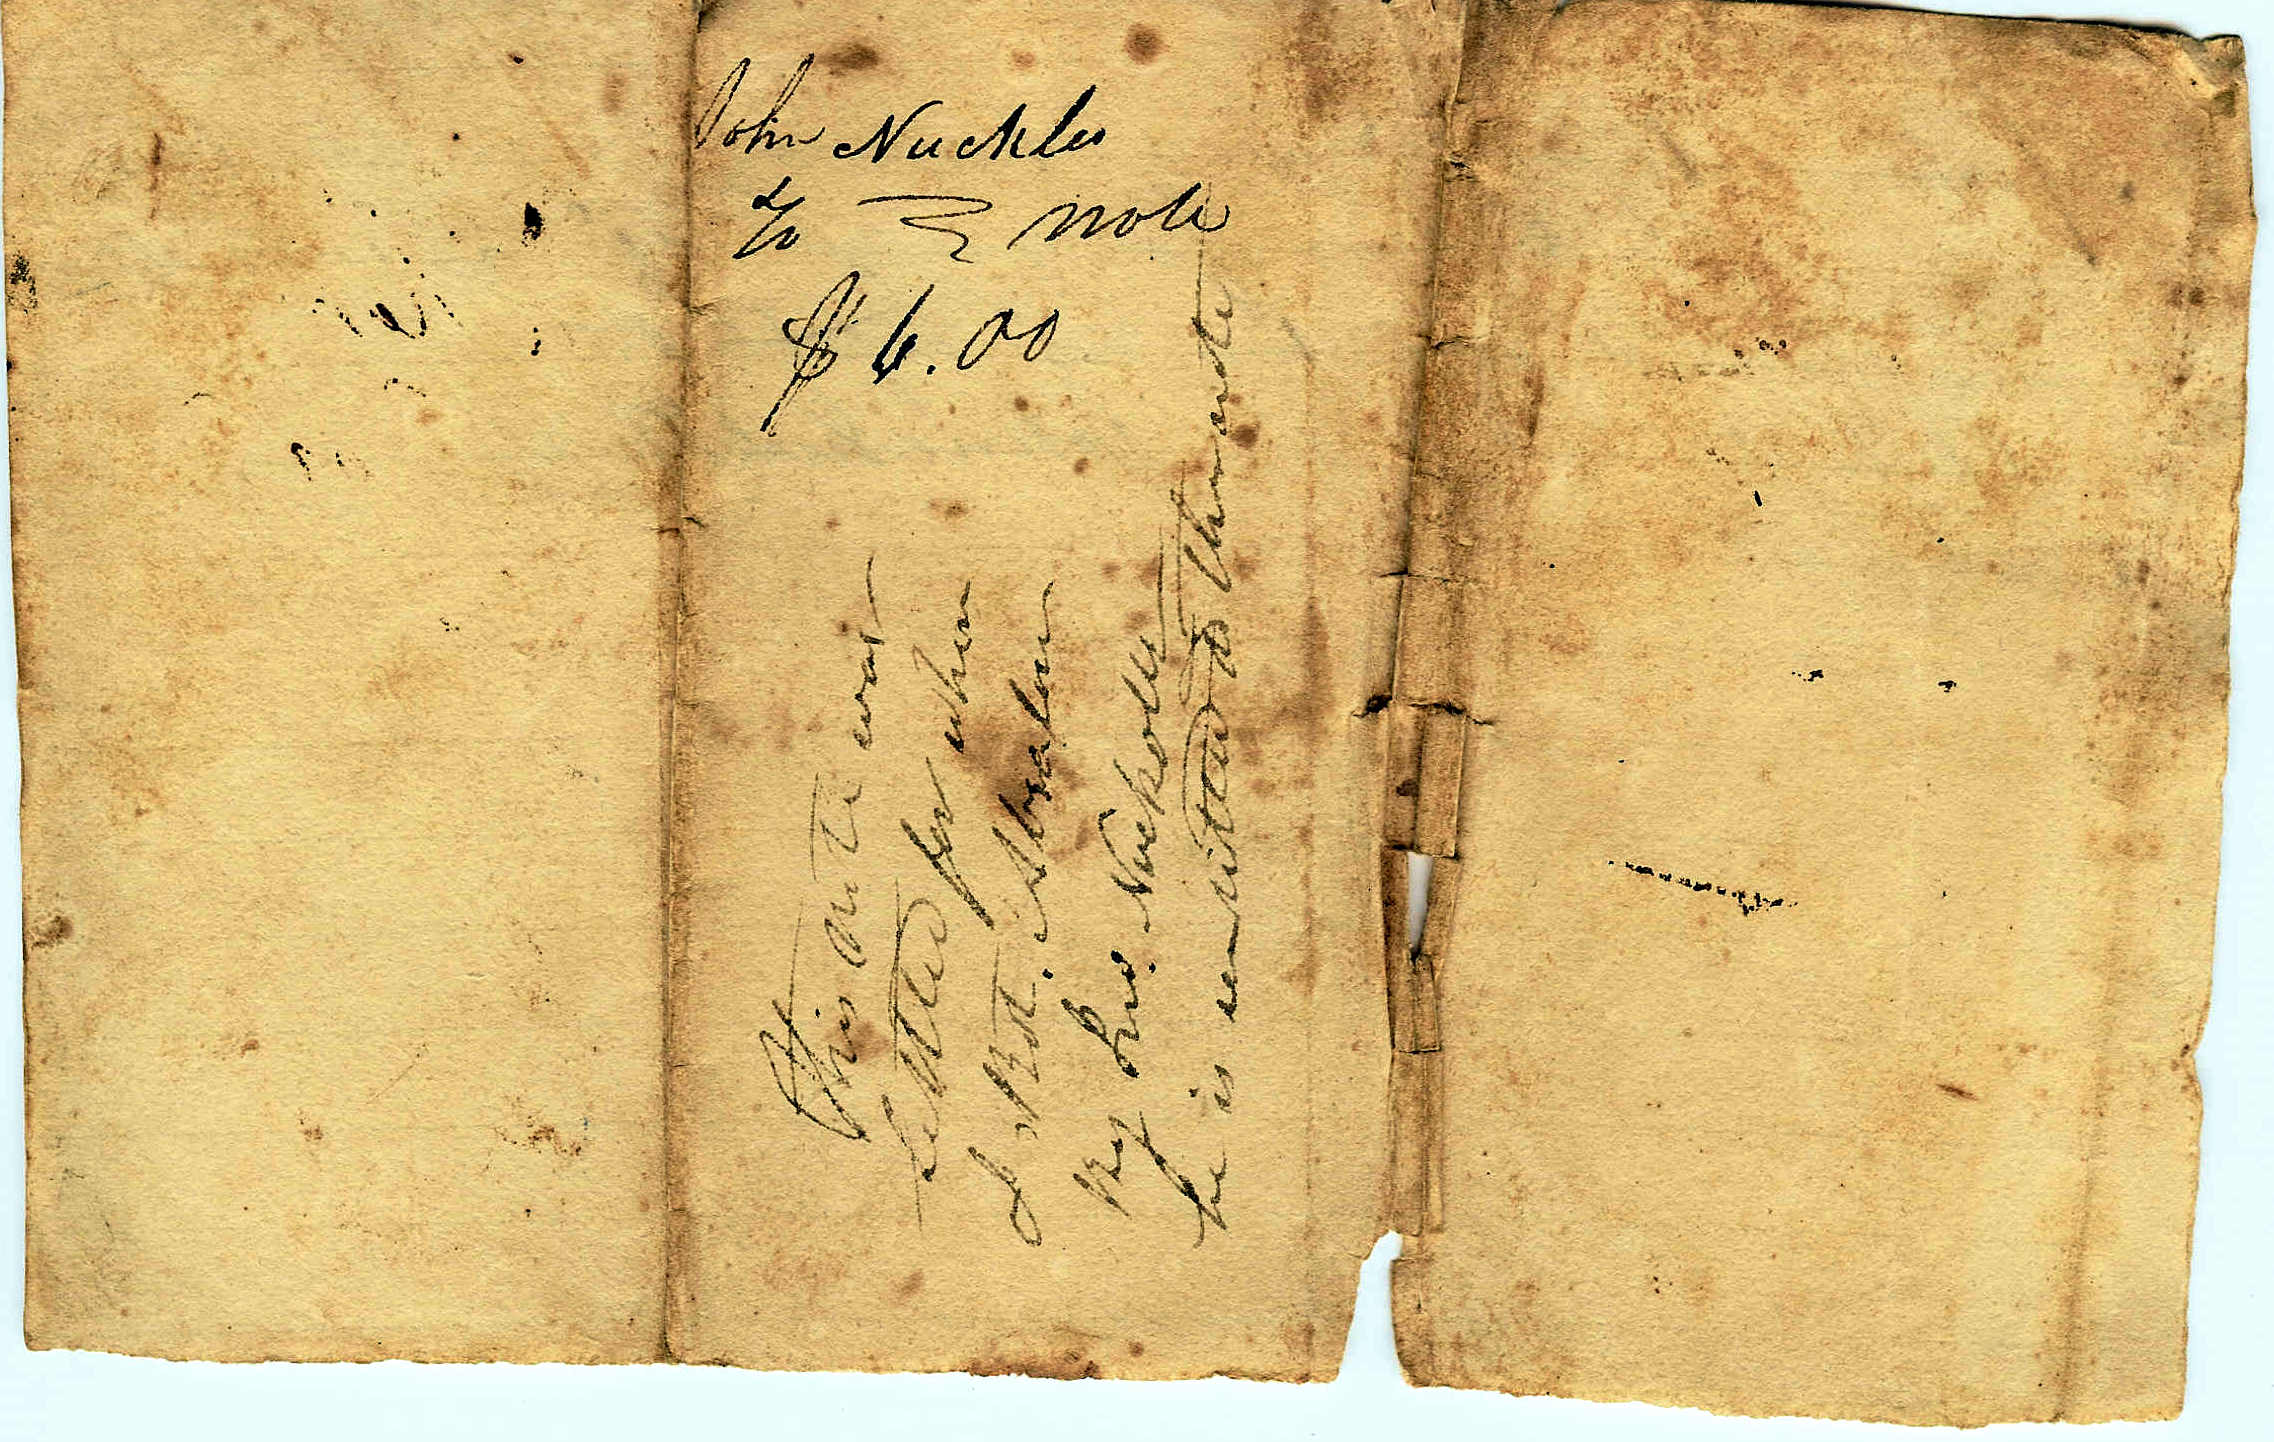 John Nuckles
To note
$6.00
This note was
settled for when
I Bot. Absalom
by Lnd. Nuckolls
he is entitled to